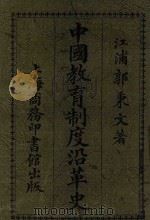 江浦郭秉文著
中國教育制度沿革史
上海商務印書館出版